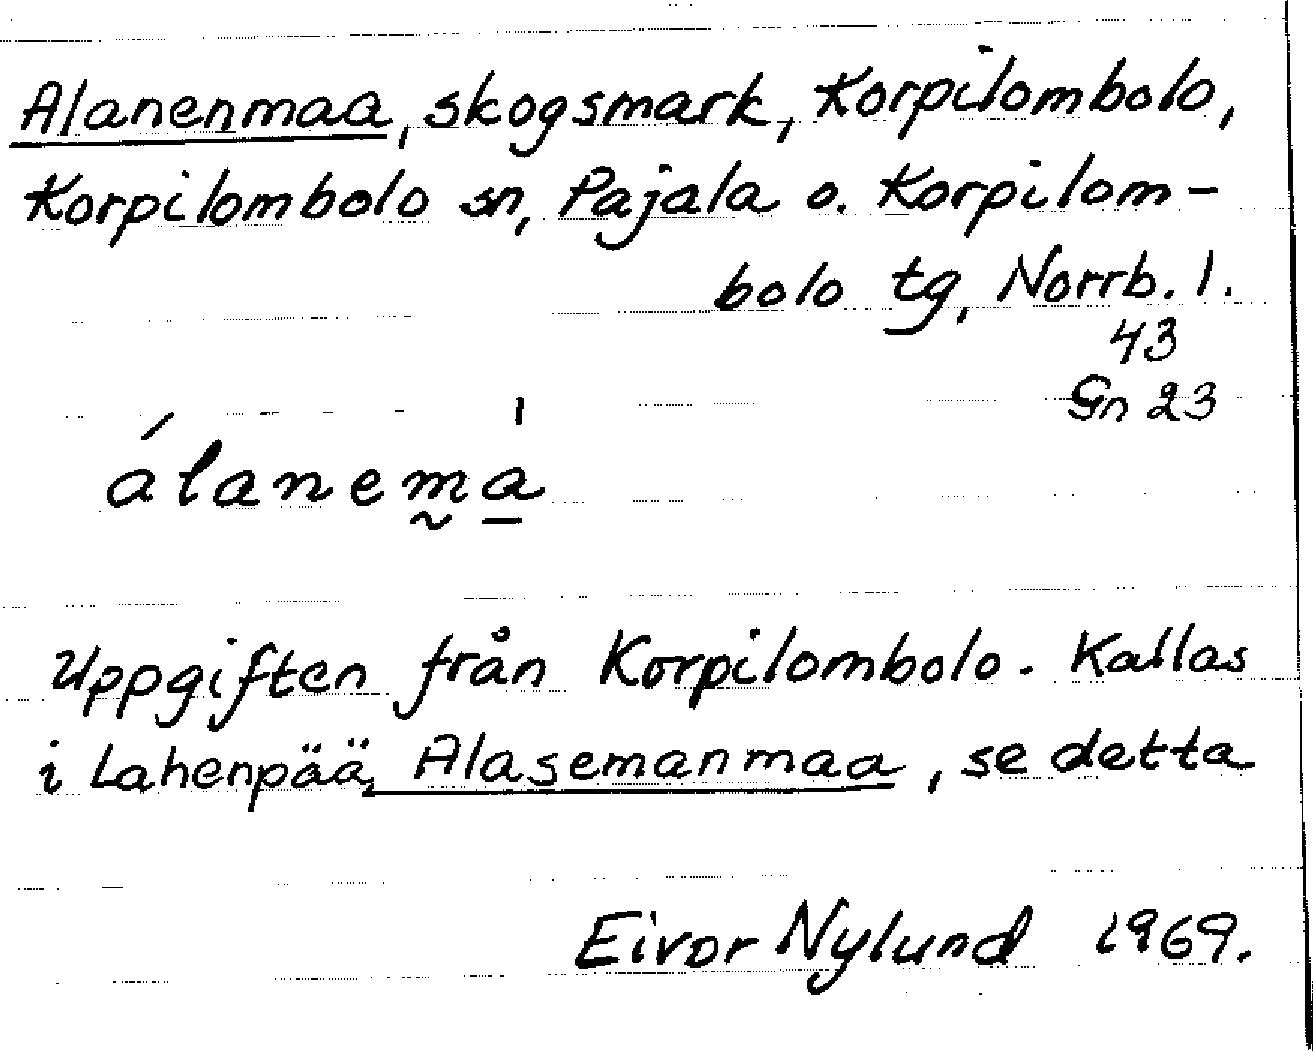 Alanenmaa, skogsmark, Korpilombolo,
Korpilombolo sn, Pajala o. Korpilom-
bolo tg, Norrb. l.
43
Gn 23
álanem̰a̱
Uppgiften från Korpilombolo. Kallas
i Lahenpää, Alasemanmaa, se detta
Eivor Nylund 1969.